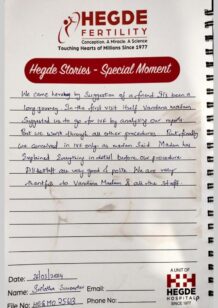 HEGDE
FERTILITY
Conception. A Miracle. A Science
Touching Hearts of Millions Since 1977
Hegde Stories - Special Moment
We came here by suggestion of a friend. It's been a
long journey. In the first visit itself Vandana madam
Suggested us to go for IVF by analysing our reports
But we went through all other procedures
we conceived in IVF only as madam said. Madam has
Explained Everything in detail before our procedure
All staff are very good & polite. We are very
thankful to Vandana Madam & all the staff.
Date:
Name:
File No: HGMO 2563
Email:
Phone No:
A UNIT OF
HEGDE
HOSPITALS
SINCE 1977